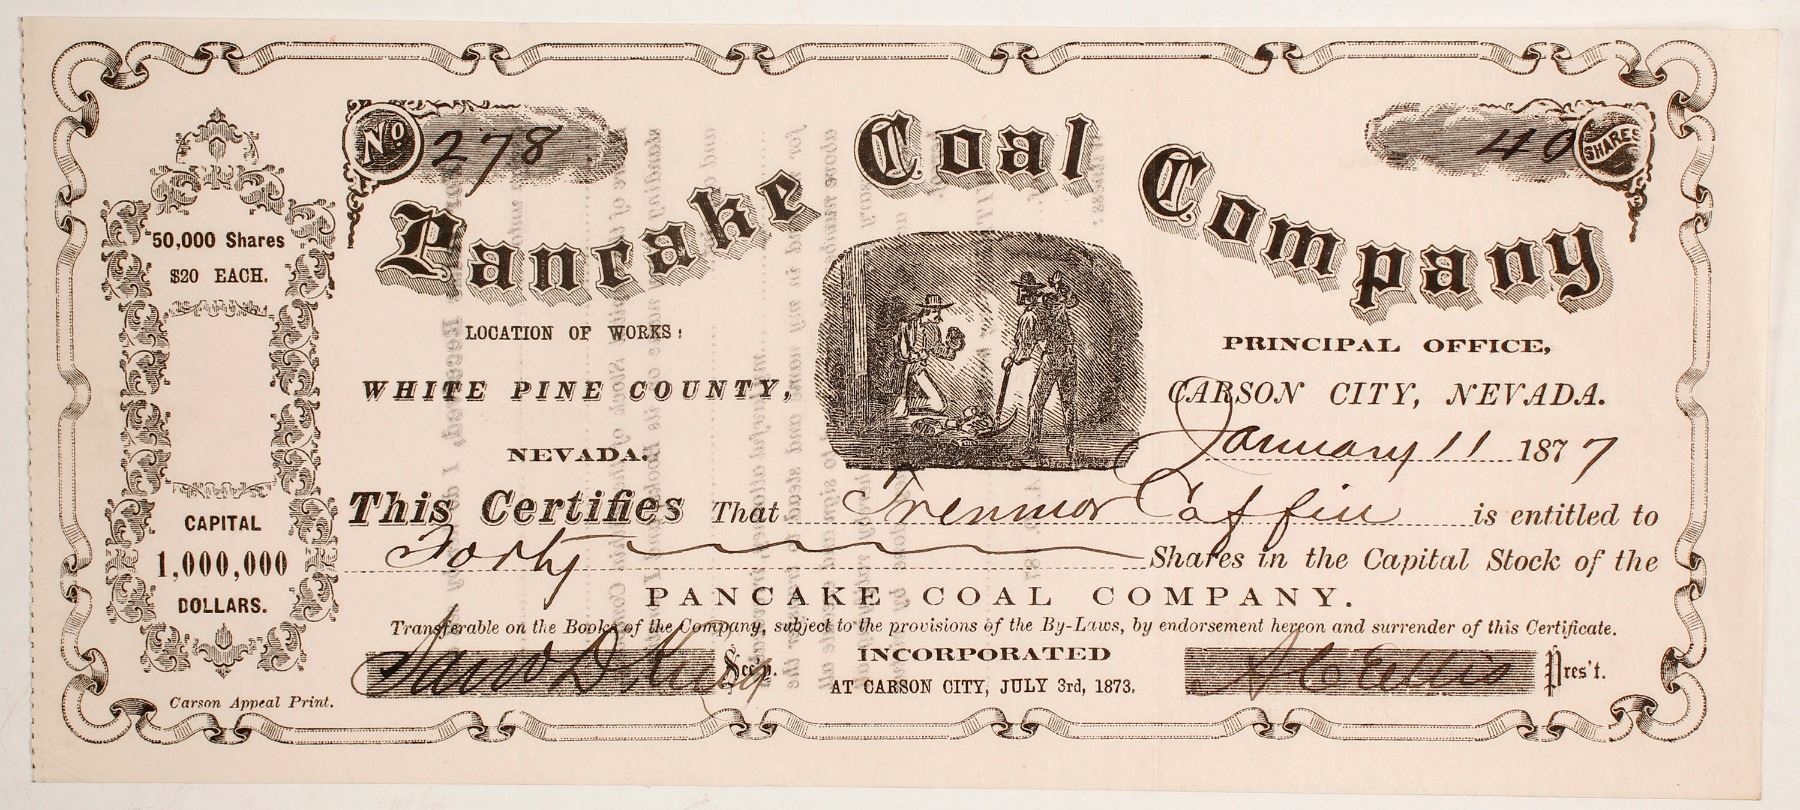 No 278
40 SHARES
Pancake Coal Company
50,000 Shares
$20 EACH.
CAPITAL
1,000,000
DOLLARS.
LOCATION OF WORKS:
WHITE PINE COUNTY,
NEVADA.
PRINCIPAL OFFICE,
CARSON CITY, NEVADA.
January 11 1877
This Certifies That Trenmor Coffin is entitled to
Forty Shares in the Capital Stock of the
PANCAKE COAL COMPANY.
Transferable on the Books of the Company, subject to the provisions of the By-Laws, by endorsement hereon and surrender of this Certificate.
Sec'y.
INCORPORATED
AT CARSON CITY, JULY 3rd, 1873.
A C Ellis Pres't.
Carson Appeal Print.